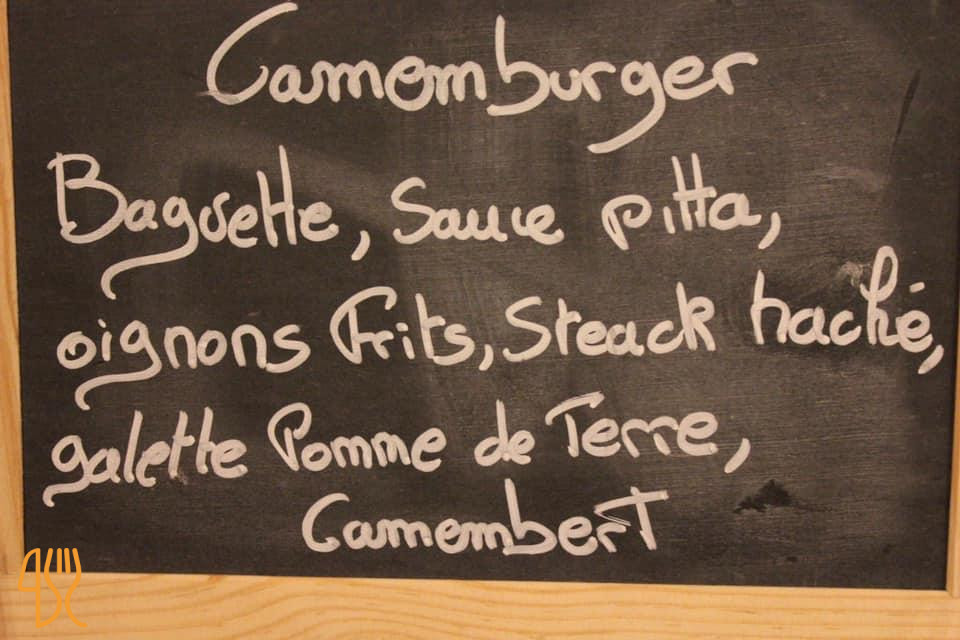 Camemburger
Baguette, Sauce pitta,
oignons frits, Steack haché,
galette Pomme de Terre,
Camembert